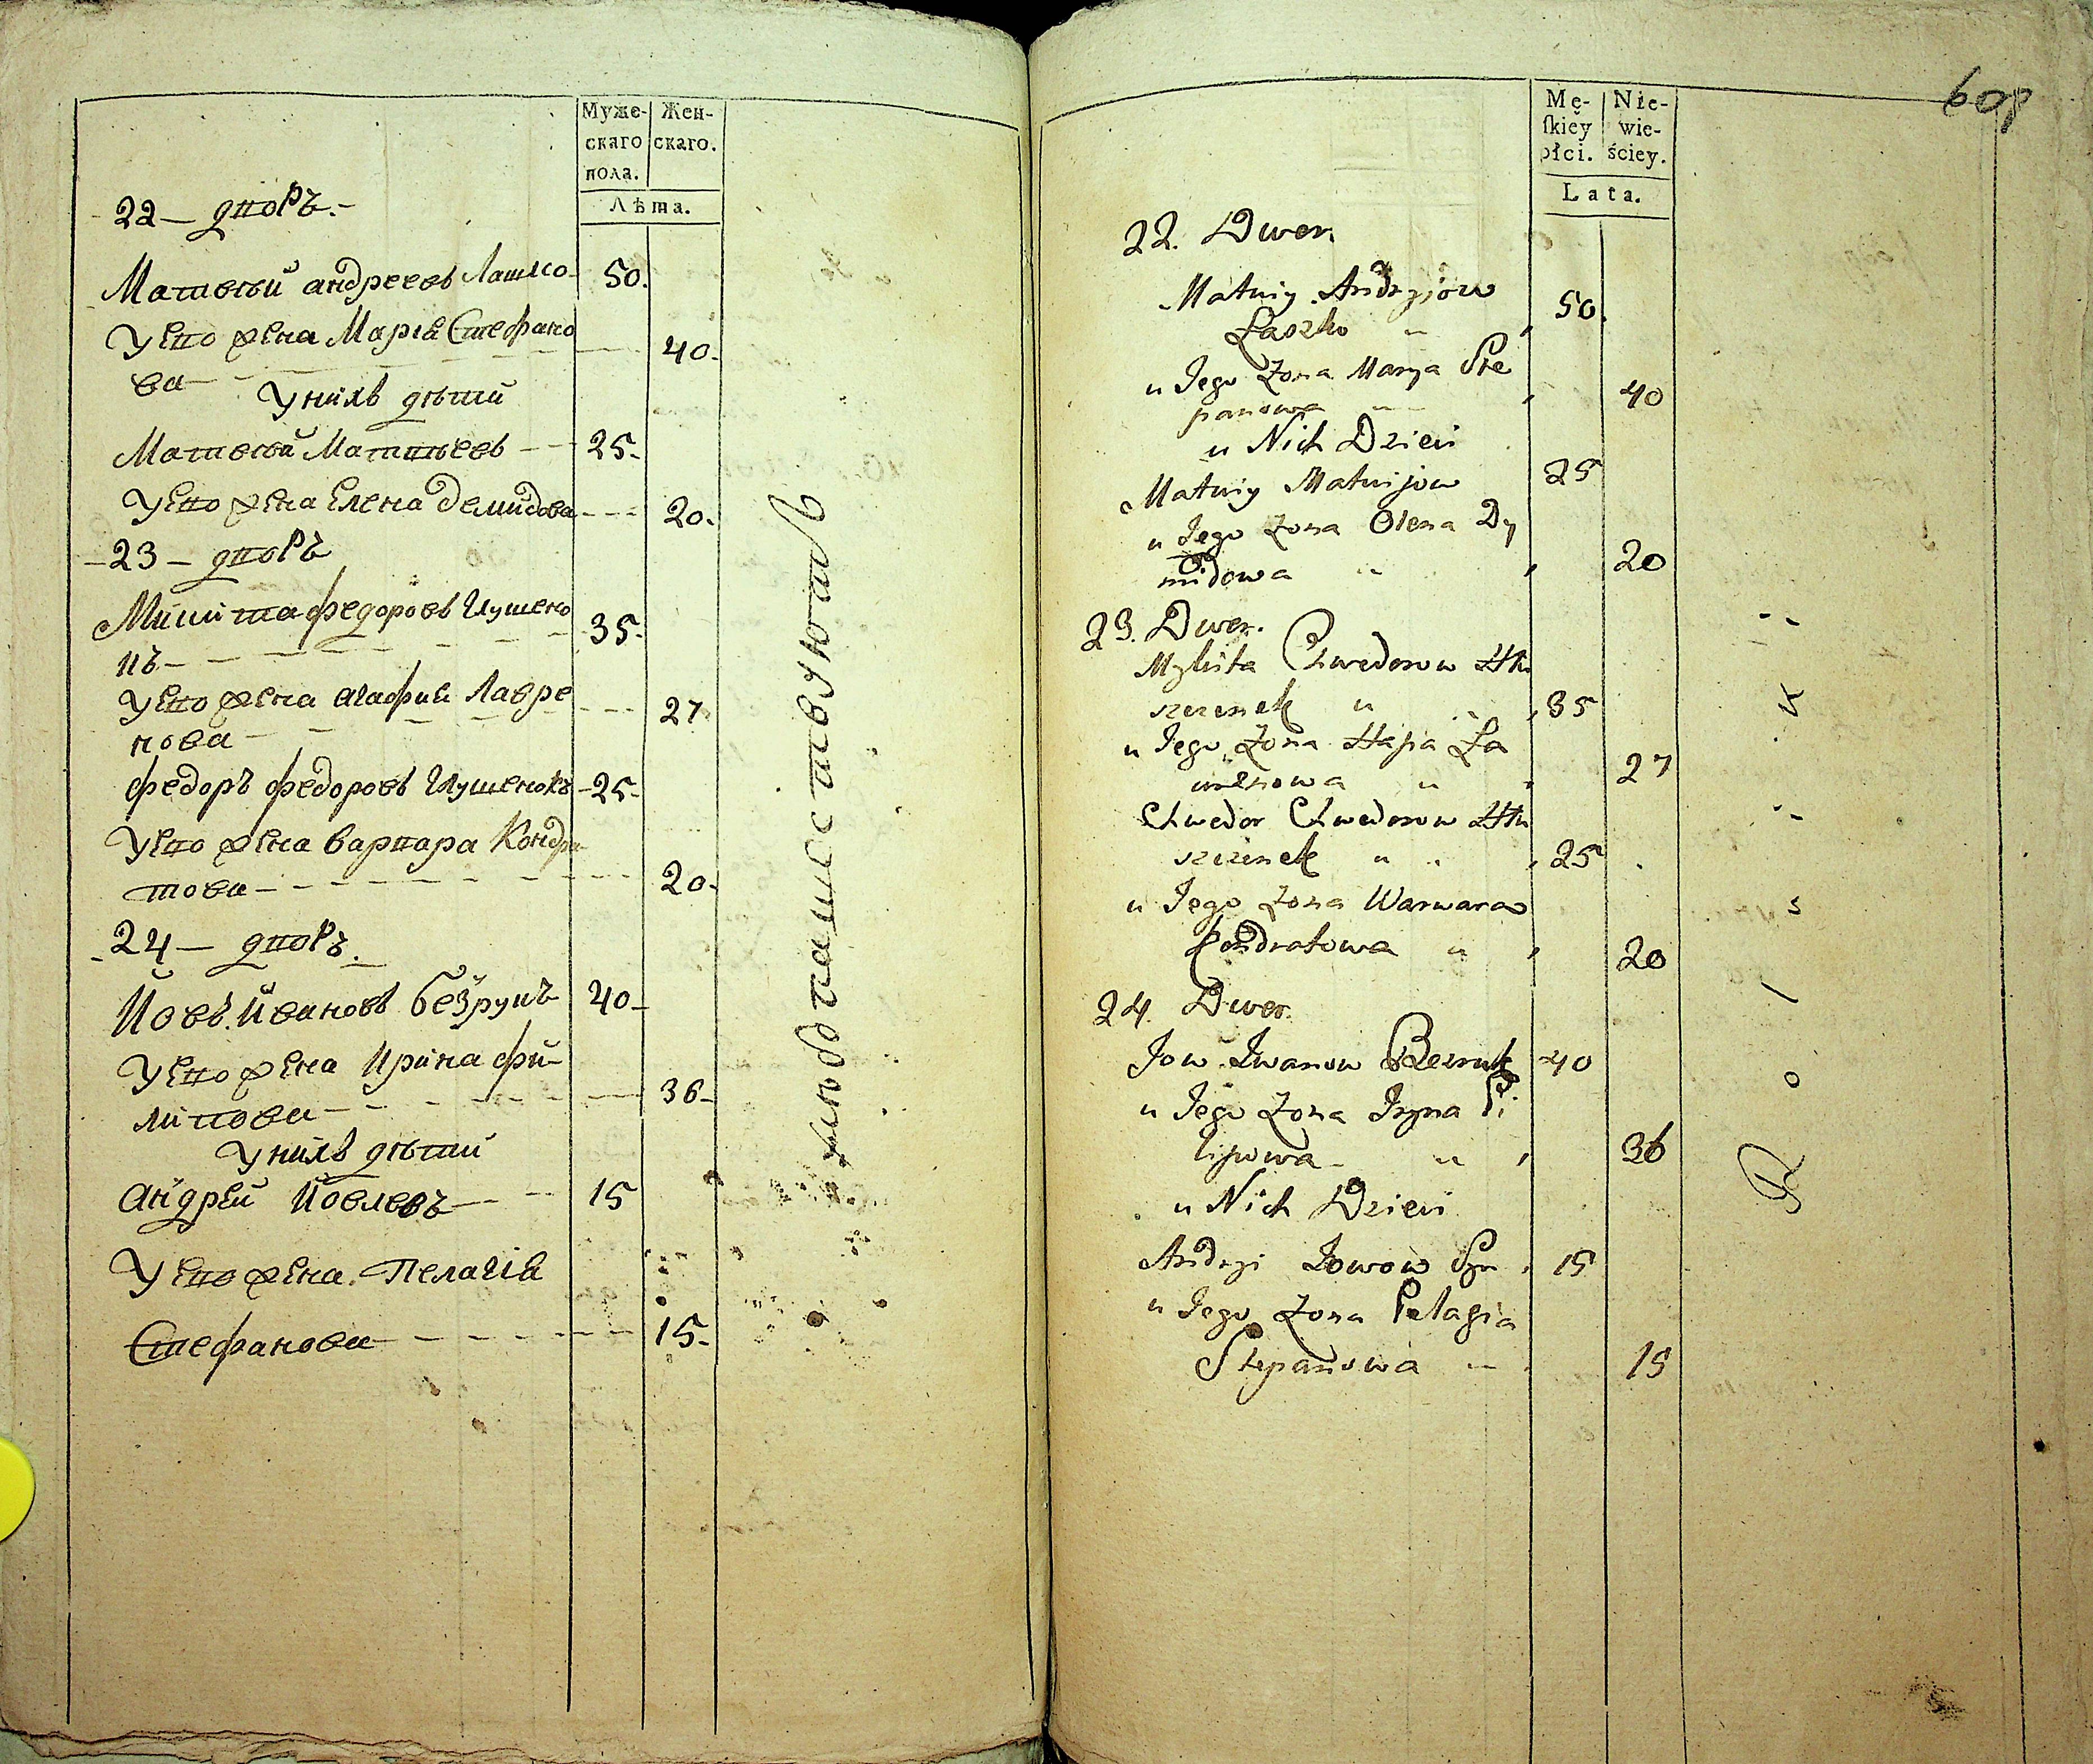 Муже-
скаго
пола.
Жен-
скаго.
Лѣта.
22 — дворъ. —
Матвѣй андреевъ Лашко 50.
У его жена Марія Стефано
ва — 40.
У нихъ дѣти
Матвѣй Матвѣевъ — 25.
У его жена Елена Демидова — 20.
— 23 — дворъ
Микита федоровъ Глушено
къ — 35.
У его жена агафия Лавре
нова — 27
федоръ федоровъ Глушенокъ — 25.
У его жена варвара Кондра
това — 20.
24 — дворъ.
Йовъ Ивановъ безрукъ 40 —
У его жена Ирина фи-
липова — 36 —
У нихъ дѣти
андрей Йовлевъ — 15
У его жена Пелагіа
Стефанова — 15.
60
Mę-
ſkiey
płci.
Nie-
wie-
ściey.
Lata.
22. Dwor.
Matwiy Andrzjow
Łaszko „ 50.
u Jego Żona Marya Ste
panowa 40
u Nich Dzieci
Matwiy Matwijow 25
u Jego Żona Olena Dy
midowa „ 20
23. Dwor.
Mykita Chwedorow Hłu
szczenek „ 35
u Jego Żona Hapa Ła
wrenowa „ 27
Chwedor Chwedorow Hłu
szczenek „ 25
u Jego Żona Warwara
Kondratowa „ 20
24. Dwor.
Jow Iwanow Bezruk 40
u Jego Żona Iryna Pi
lipowa „ 36
u Nich Dzieci
Andrzi Jowow Syn 15
u Jego Żona Pelagia
Stepanowa „ 15